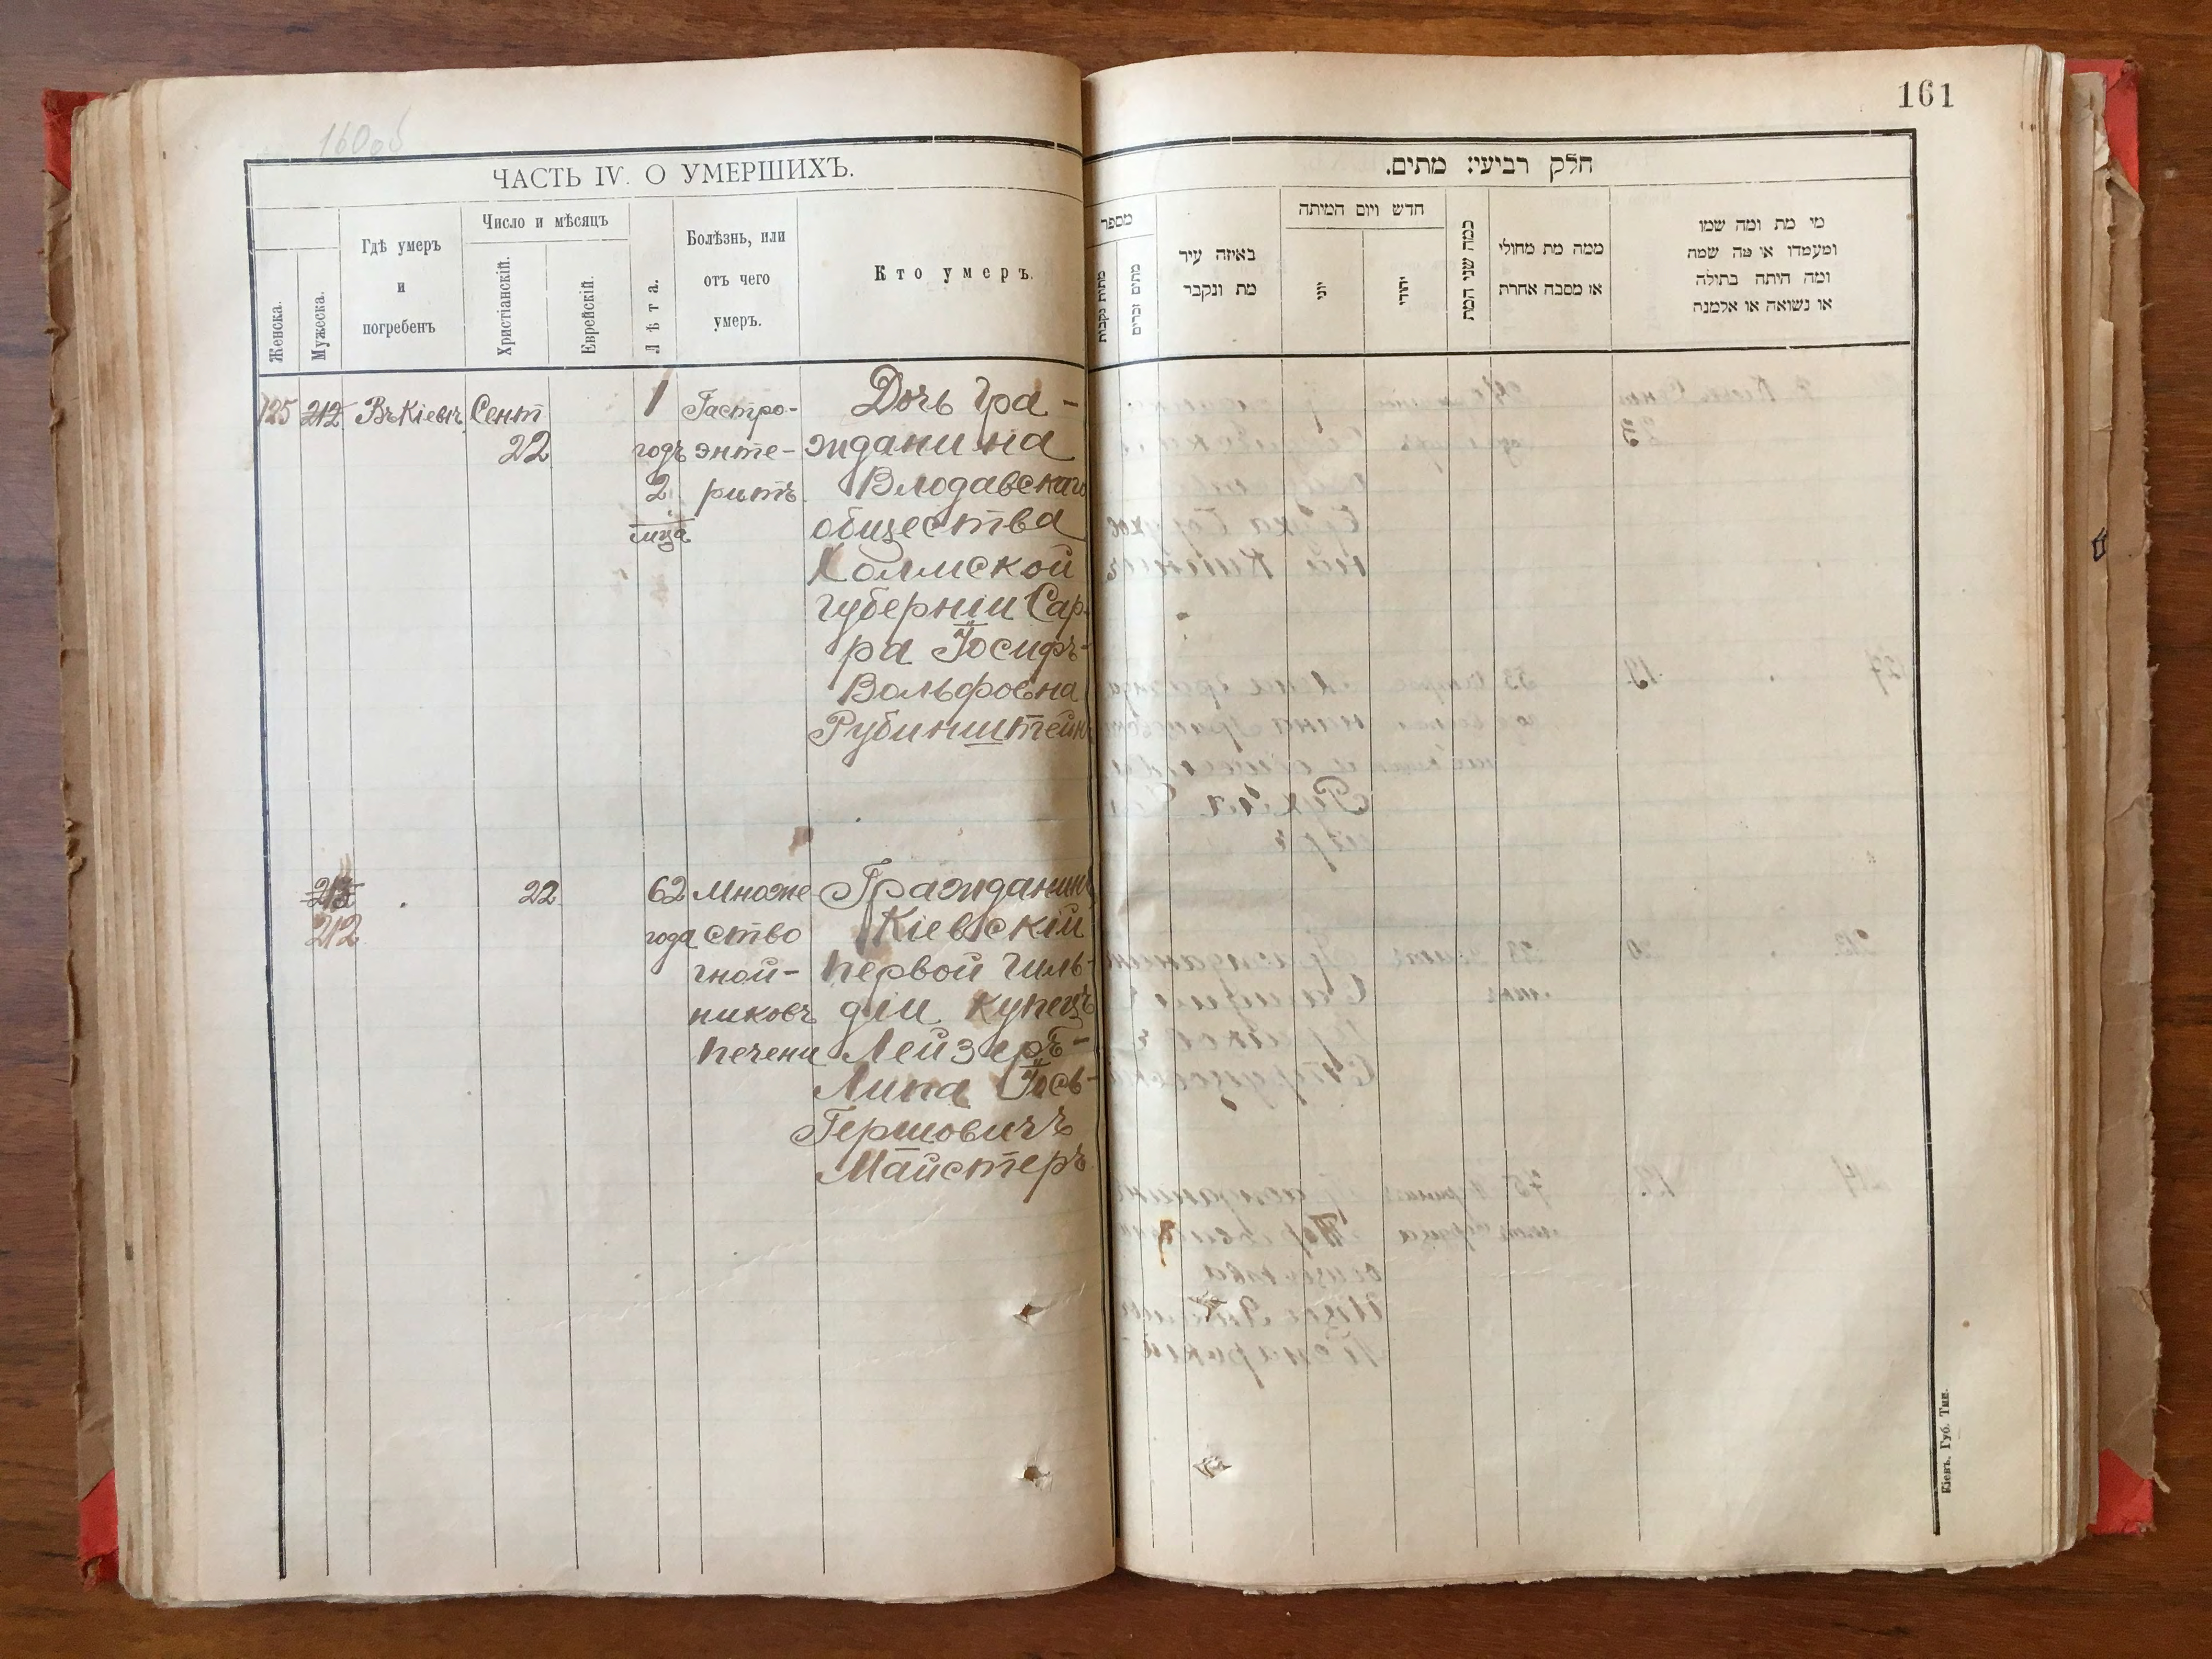 160об
161
ЧАСТЬ IV. О УМЕРШИХЪ.
Женска.
Мужеска.
Гдѣ умеръ
и
погребенъ
Число и мѣсяцъ
Христіанскій.
Еврейскій.
Лѣта.
Болѣзнь, или
отъ чего
умеръ.
Кто умеръ.
125
212
Въ Кіевѣ
Сент
22
1
годъ
2
м-ца
Гастро-
энте-
ритъ
Дочь Гра-
жданина
Влодавскаго
общества
Холмской
губерніи Сар-
ра Іосифъ-
Вольфовна
Рубинштейнъ
213
212
22
62
года
Множе
ство
гной-
никовъ
печени
Гражданинъ
Кіевскій
первой гиль-
діи купецъ
Лейзеръ-
Липа Іось-
Гершовичъ
Майстеръ
חלק רביעי: מתים.
מספר
מתות נקבות
מתים זכרים
באיזה עיר
מת ונקבר
חדש ויום המיתה
יוני
יהודי
כמה שני המת
ממה מת מחולי
או מסבה אחרת
מי מת ומה שמו
ומעמדו או מה שמה
ומה היתה בתולה
או נשואה או אלמנה
Кіевъ. Губ. Тип.